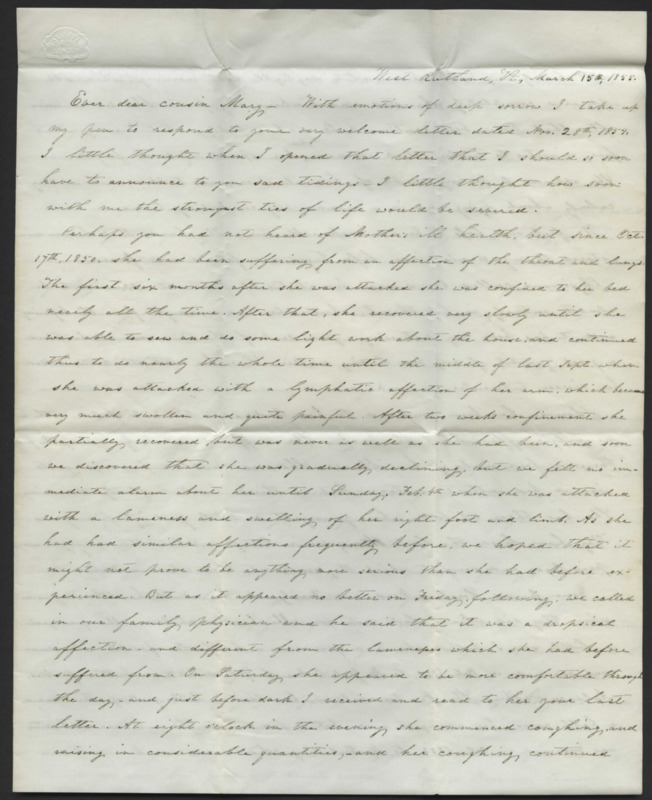 West Rutland, Vt, March 15th, 1855.
Ever dear cousin Mary,- With emotions of deep sorrow I take up
my pen to respond to your very welcome letter dated Nov. 28th, 1854.
I little thought when I opened that letter that I should so soon
have to announce to you sad tidings - I little thought how soon
with me the strongest ties of life would be severed.
Perhaps you had not heard of Mother's ill health, but since Oct.
17th, 1850. she had been suffering from an affection of the throat and lungs
The first six months after she was attacked she was confined to her bed
nearly all the time. After that, she recovered very slowly until she
was able to sew and do some light work about the house, and continued
thus to do nearly the whole time until the middle of last Sept. when
she was attacked with a lymphatic affection of her arm. which became
very much swollen and quite painful. After two weeks confinement she
partially recovered, but was never as well as she had been, and soon
we discovered that she was gradually declining, but we felt no im-
mediate alarm about her until Sunday, Feb. 4th when she was attacked
with a lameness and swelling of her right foot and limb. As she
had had similar affections frequently before, we hoped that it
might not prove to be anything more serious than she had before ex-
perienced. But as it appeared no better on Friday, following, we called
in our family physician and he said that it was a dropsical
affection - and different from the lamenesses which she had before
suffered from. On Saturday she appeared to be more comfortable through
the day,- and just before dark I received and read to her your last
letter. At eight o'clock in the evening she commenced coughing, and
raising in considerable quantities,- and her coughing continued